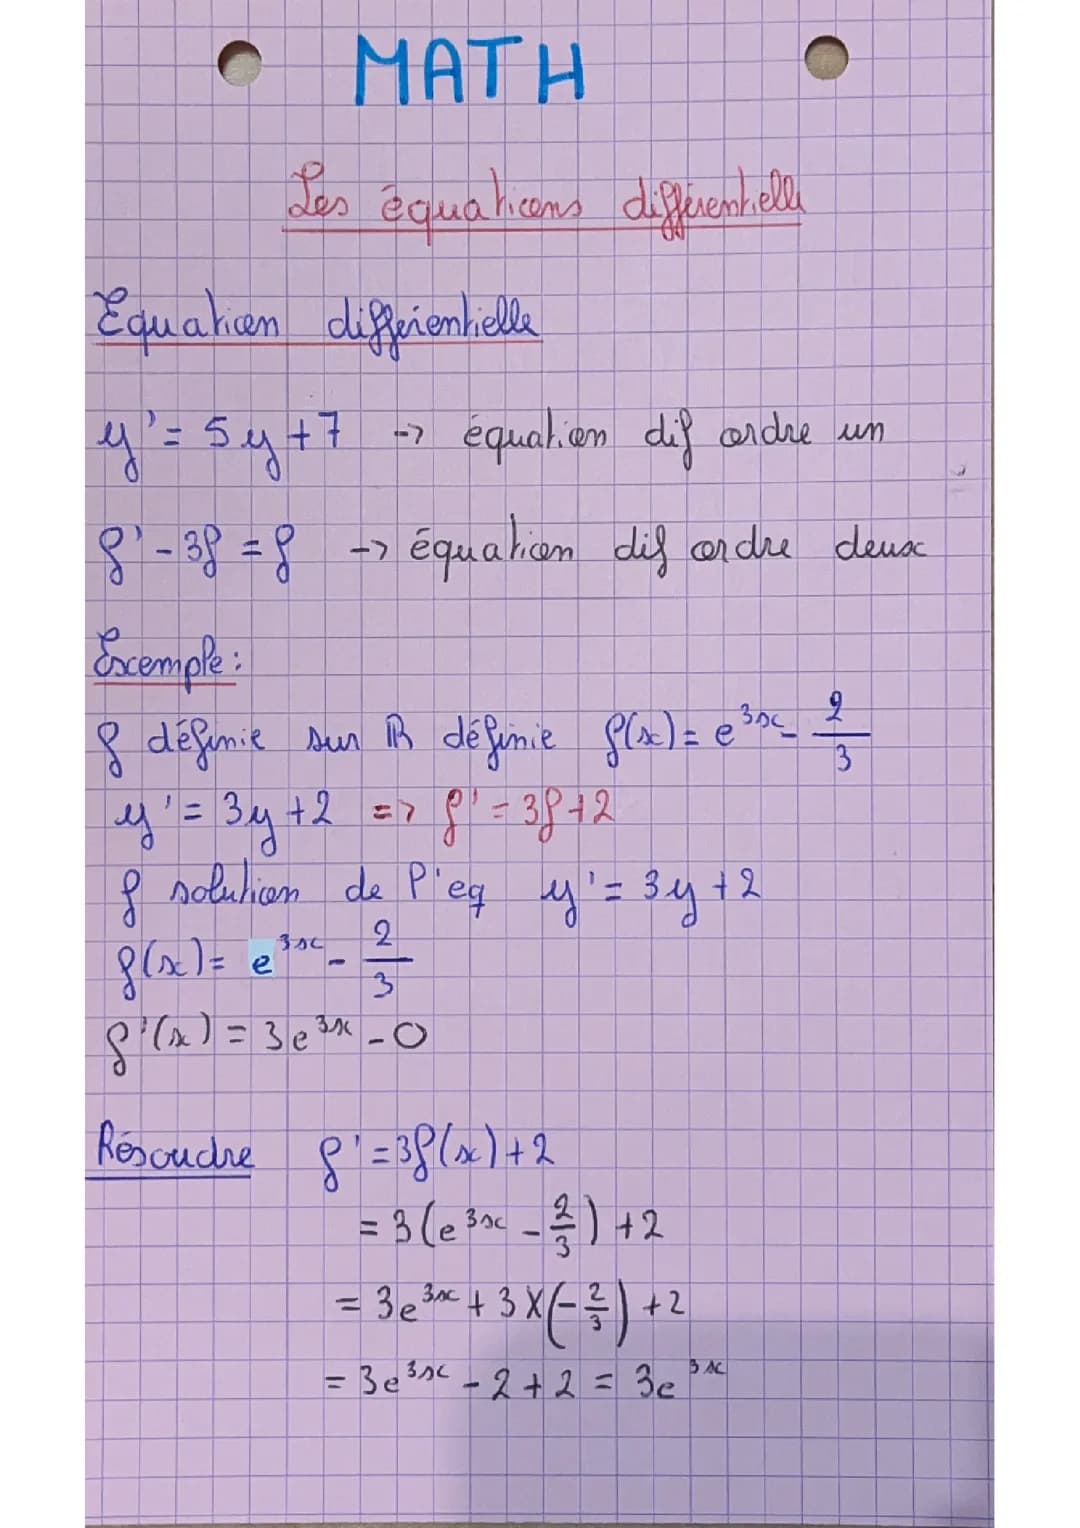 MATH
Les équations différentielle
Equation différentielle
y' = 5y + 7 -> équation dif ordre un
f' - 3f = f -> équation dif ordre deux
Exemple :
f définie sur ℝ définie f(x) = e^{3x} - 2/3
y' = 3y + 2 => f' = 3f + 2
f solution de l'eq y' = 3y + 2
f(x) = e^{3x} - 2/3
f'(x) = 3e^{3x} - 0
Résoudre f' = 3f(x) + 2
= 3(e^{3x} - 2/3) + 2
= 3e^{3x} + 3 × (-2/3) + 2
= 3e^{3x} - 2 + 2 = 3e^{3x}